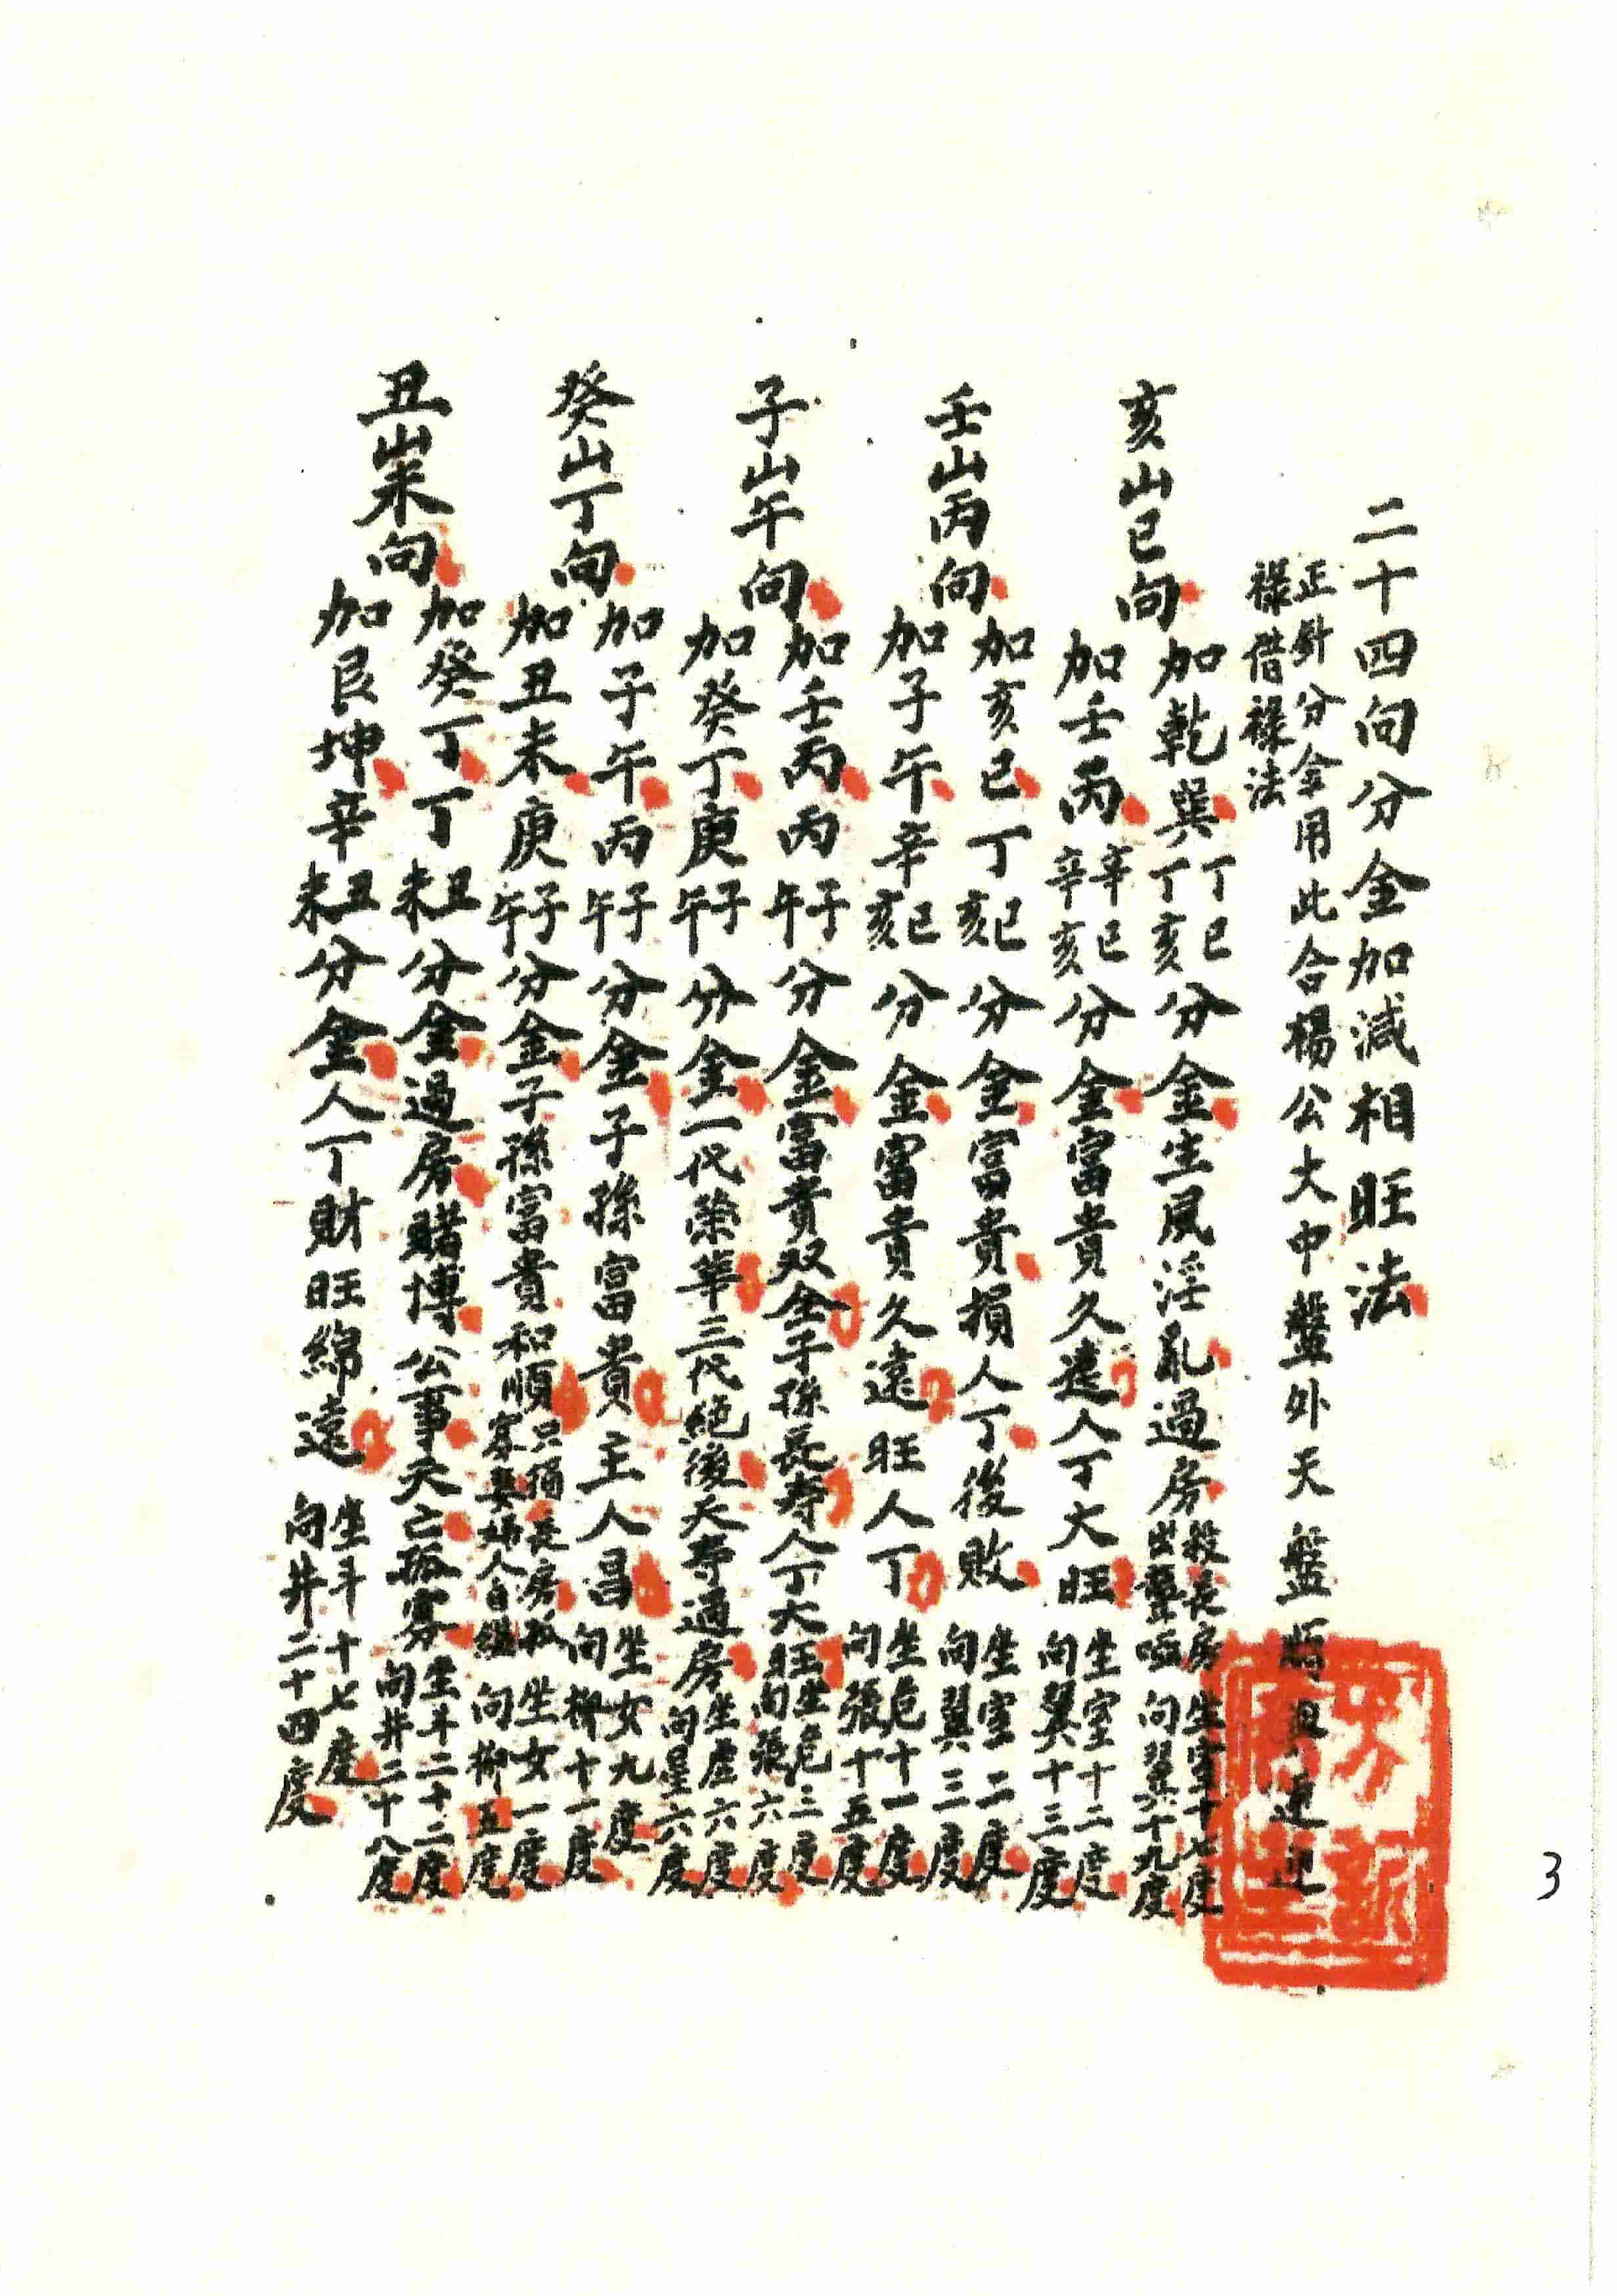 二十四向分金加減相旺法
正針分金用此合楊公大中盤外天盤
祿借祿法
亥山巳向
加乾巽丁巳丁亥分金生風淫亂過房殺長房出聾啞坐室十七度向翼十九度
加壬丙辛巳辛亥分金富貴久遠人丁大旺坐室十二度向翼十三度
壬山丙向
加亥巳丁巳亥分金富貴損人丁後敗坐室二度向翼三度
加子午辛巳亥分金富貴久遠旺人丁坐危十一度向張十五度
子山午向
加壬丙丙子午分金富貴双全子孫長寿人丁大旺坐危三度向張六度
加癸丁庚子午分金一代榮華三代絕後夭寿過房坐虛六度向星六度
癸山丁向
加子午丙子午分金子孫富貴主人昌坐女九度向柳十一度
加丑未庚子午分金子孫富貴和順只損長房寡婦人自縊坐女一度向柳五度
丑山未向
加癸丁丁丑未分金過房賭博公事夭亡孤寡坐斗二十二度向井二十八度
加艮坤辛丑未分金人丁財旺綿遠坐斗十七度向井二十四度
3